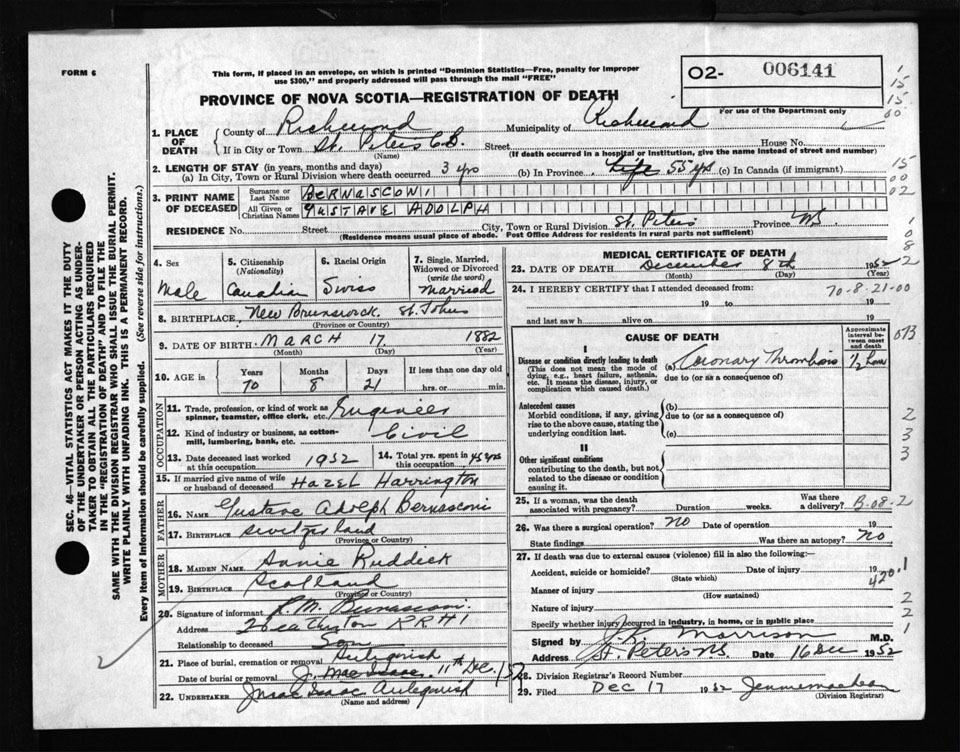 FORM 6
This form, if placed in an envelope, on which is printed "Dominion Statistics—Free, penalty for improper
use $300," and properly addressed will pass through the mail "FREE"
O2- 006141
For use of the Department only
PROVINCE OF NOVA SCOTIA—REGISTRATION OF DEATH
1. PLACE OF DEATH { County of Richmond Municipality of Richmond
If in City or Town St. Peters C.B. Street House No.
(Name) (If death occurred in a hospital or institution, give the name instead of street and number)
2. LENGTH OF STAY (in years, months and days)
(a) In City, Town or Rural Division where death occurred 3 yrs (b) In Province life 55 yrs (c) In Canada (if immigrant)
3. PRINT NAME OF DECEASED { Surname or Last Name BERNASCONI
All Given or Christian Names GUSTAVE ADOLPH
RESIDENCE No. Street City, Town or Rural Division St. Peters Province N.S.
(Residence means usual place of abode. Post Office Address for residents in rural parts not sufficient)
4. Sex Male
5. Citizenship (Nationality) Canadian
6. Racial Origin Swiss
7. Single, Married, Widowed or Divorced (write the word) Married
8. BIRTHPLACE New Brunswick St. Johns
(Province or Country)
9. DATE OF BIRTH: MARCH 17 1882
(Month) (Day) (Year)
10. AGE in Years Months Days If less than one day old
70 8 21 hrs. or min.
OCCUPATION
11. Trade, profession, or kind of work as spinner, teamster, office clerk, etc. Engineer
12. Kind of industry or business, as cotton-mill, lumbering, bank, etc. Civil
13. Date deceased last worked at this occupation 1952
14. Total yrs. spent in this occupation 45 yrs
15. If married give name of wife or husband of deceased Hazel Harrington
FATHER
16. NAME Gustave Adolph Bernasconi
17. BIRTHPLACE Switzerland
(Province or Country)
MOTHER
18. MAIDEN NAME Annie Ruddick
19. BIRTHPLACE Scotland
(Province or Country)
20. Signature of informant Bernasconi
Address RR #1
Relationship to deceased Son
21. Place of burial, cremation or removal Antigonish
Date of burial or removal 11th Dec. /52
22. UNDERTAKER Antigonish
(Name and address)
MEDICAL CERTIFICATE OF DEATH
23. DATE OF DEATH December 8th 1952
(Month) (Day) (Year)
24. I HEREBY CERTIFY that I attended deceased from:
70-8-21-00
19 to 19
and last saw h alive on 19
CAUSE OF DEATH
Approximate interval between onset and death
I
Disease or condition directly leading to death (a) Coronary Thrombosis 1/2 hour
(This does not mean the mode of dying, e.g., heart failure, asthenia, etc. It means the disease, injury, or complication which caused death.)
due to (or as a consequence of)
Antecedent causes (b)
Morbid conditions, if any, giving rise to the above cause, stating the underlying condition last.
due to (or as a consequence of)
(c)
II
Other significant conditions contributing to the death, but not related to the disease or condition causing it.
25. If a woman, was the death associated with pregnancy? Duration weeks. Was there a delivery? B-08-2
26. Was there a surgical operation? no Date of operation 19
State findings Was there an autopsy? No
27. If death was due to external causes (violence) fill in also the following:
Accident, suicide or homicide? Date of injury 19
(State which)
420.1
Manner of injury
(How sustained)
Nature of injury
Specify whether injury occurred in industry, in home, or in public place
Signed by Morrison M.D.
Address St. Peters N.S. Date 16 Dec 1952
28. Division Registrar's Record Number
29. Filed Dec 17 1952
(Division Registrar)
SEC. 46—VITAL STATISTICS ACT MAKES IT THE DUTY
OF THE UNDERTAKER OR PERSON ACTING AS UNDERTAKER TO OBTAIN ALL THE PARTICULARS REQUIRED
IN THE "REGISTRATION OF DEATH" AND TO FILE THE
SAME WITH THE DIVISION REGISTRAR WHO SHALL ISSUE THE BURIAL PERMIT.
WRITE PLAINLY WITH UNFADING INK. THIS IS A PERMANENT RECORD.
Every item of information should be carefully supplied. (See reverse side for instructions.)